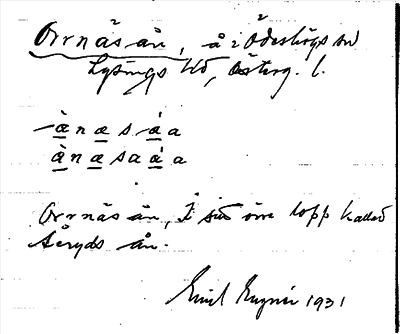 Orrnäs ån, å i Ödeshögs sn
Lysings hd, Österg. l.
-à n æ s -á a
à n æ s a á a
Orrnäs ån, I sitt övre lopp kallad
Åeryds ån.
Emil 1931